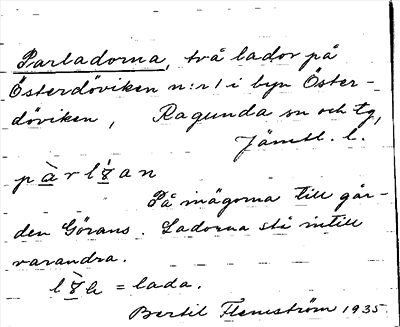 Parladorna, två lador på
Österdöviken n:r 1 i byn Öster-
döviken, Ragunda sn och tg,
Jämtl. l.
På inägorna till går-
den Görans. Ladorna stå intill
varandra.
= lada.
Bertil Flemström 1935.